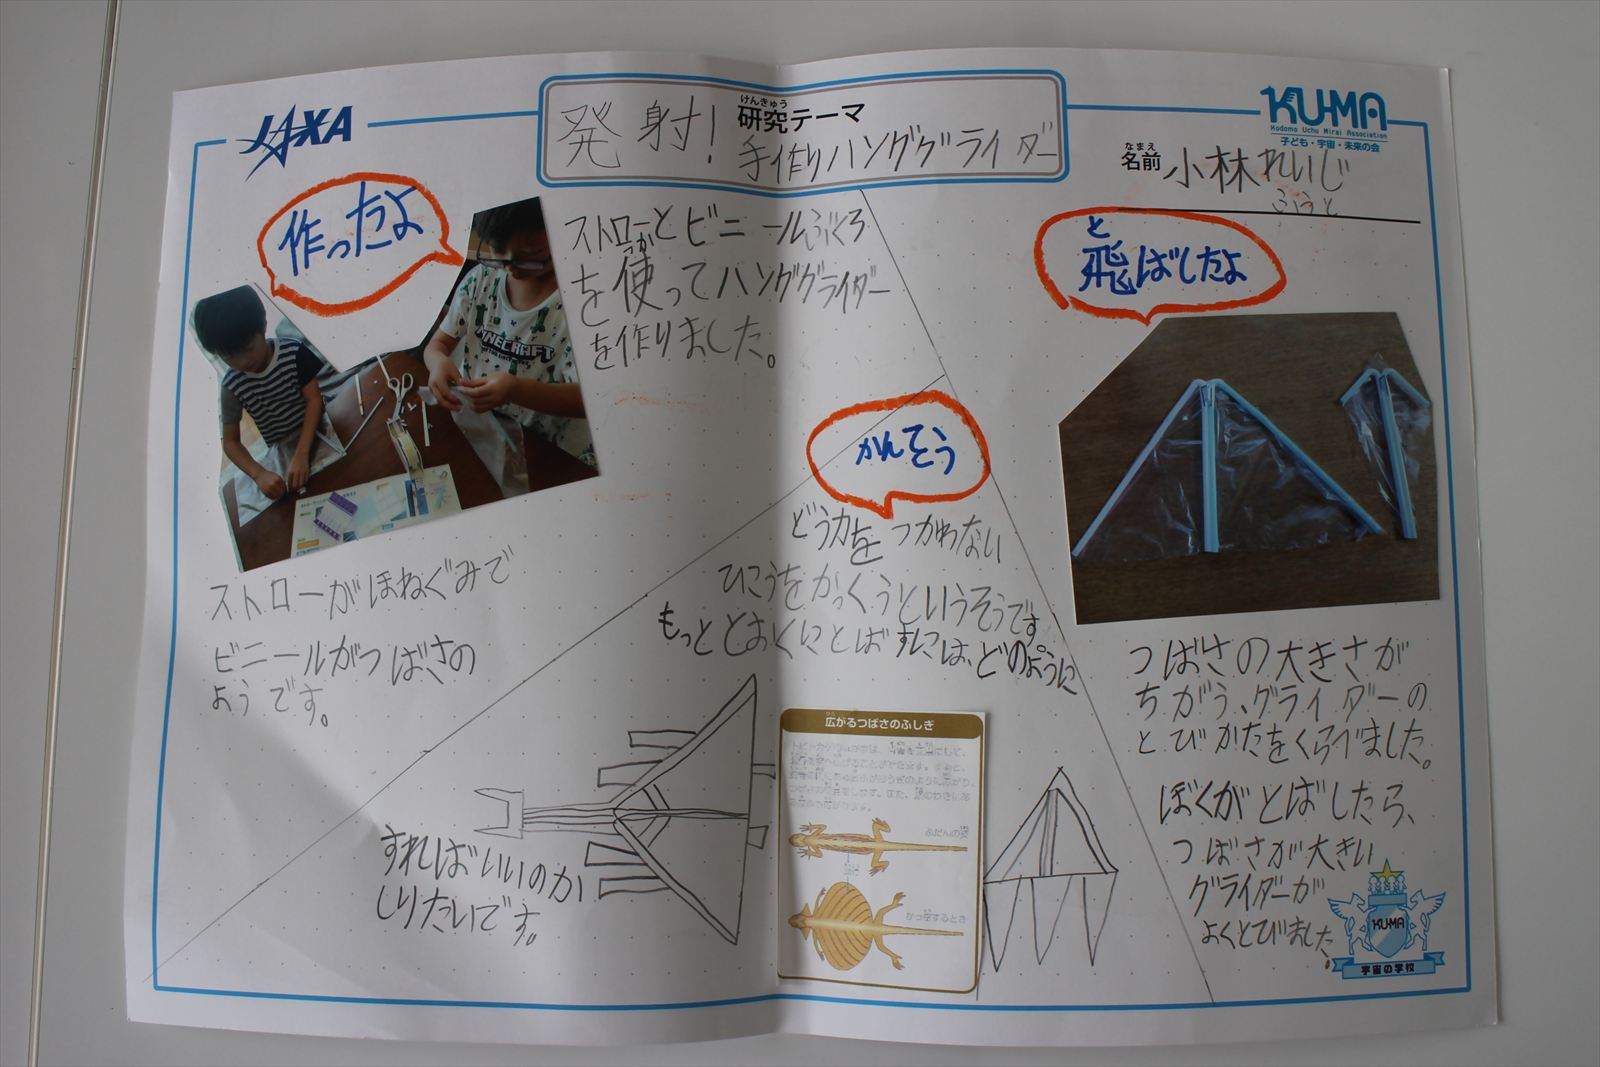 JAXA
けんきゅう
研究テーマ
発射！
手作りハンググライダー
KU-MA
Kodomo Uchu Mirai Association
子ども・宇宙・未来の会
なまえ
名前 小林れいじ
ふうと
作ったよ
MINECRAFT
ストローとビニールぶくろ
つか
を使ってハンググライダー
を作りました。
ストローがほねぐみで
ビニールがつばさの
ようです。
かんそう
どう力をつかわない
ひこうをかっくうというそうです。
もっととおくにとばすには、どのように
すればいいのか
しりたいです。
ひろ
広がるつばさのふしぎ
ふだんの姿
かっ空するとき
と
飛ばしたよ
つばさの大きさが
ちがう、グライダーの
とびかたをくらべました。
ぼくがとばしたら、
つばさが大きい
グライダーが
よくとびました。
KUMA
宇宙の学校